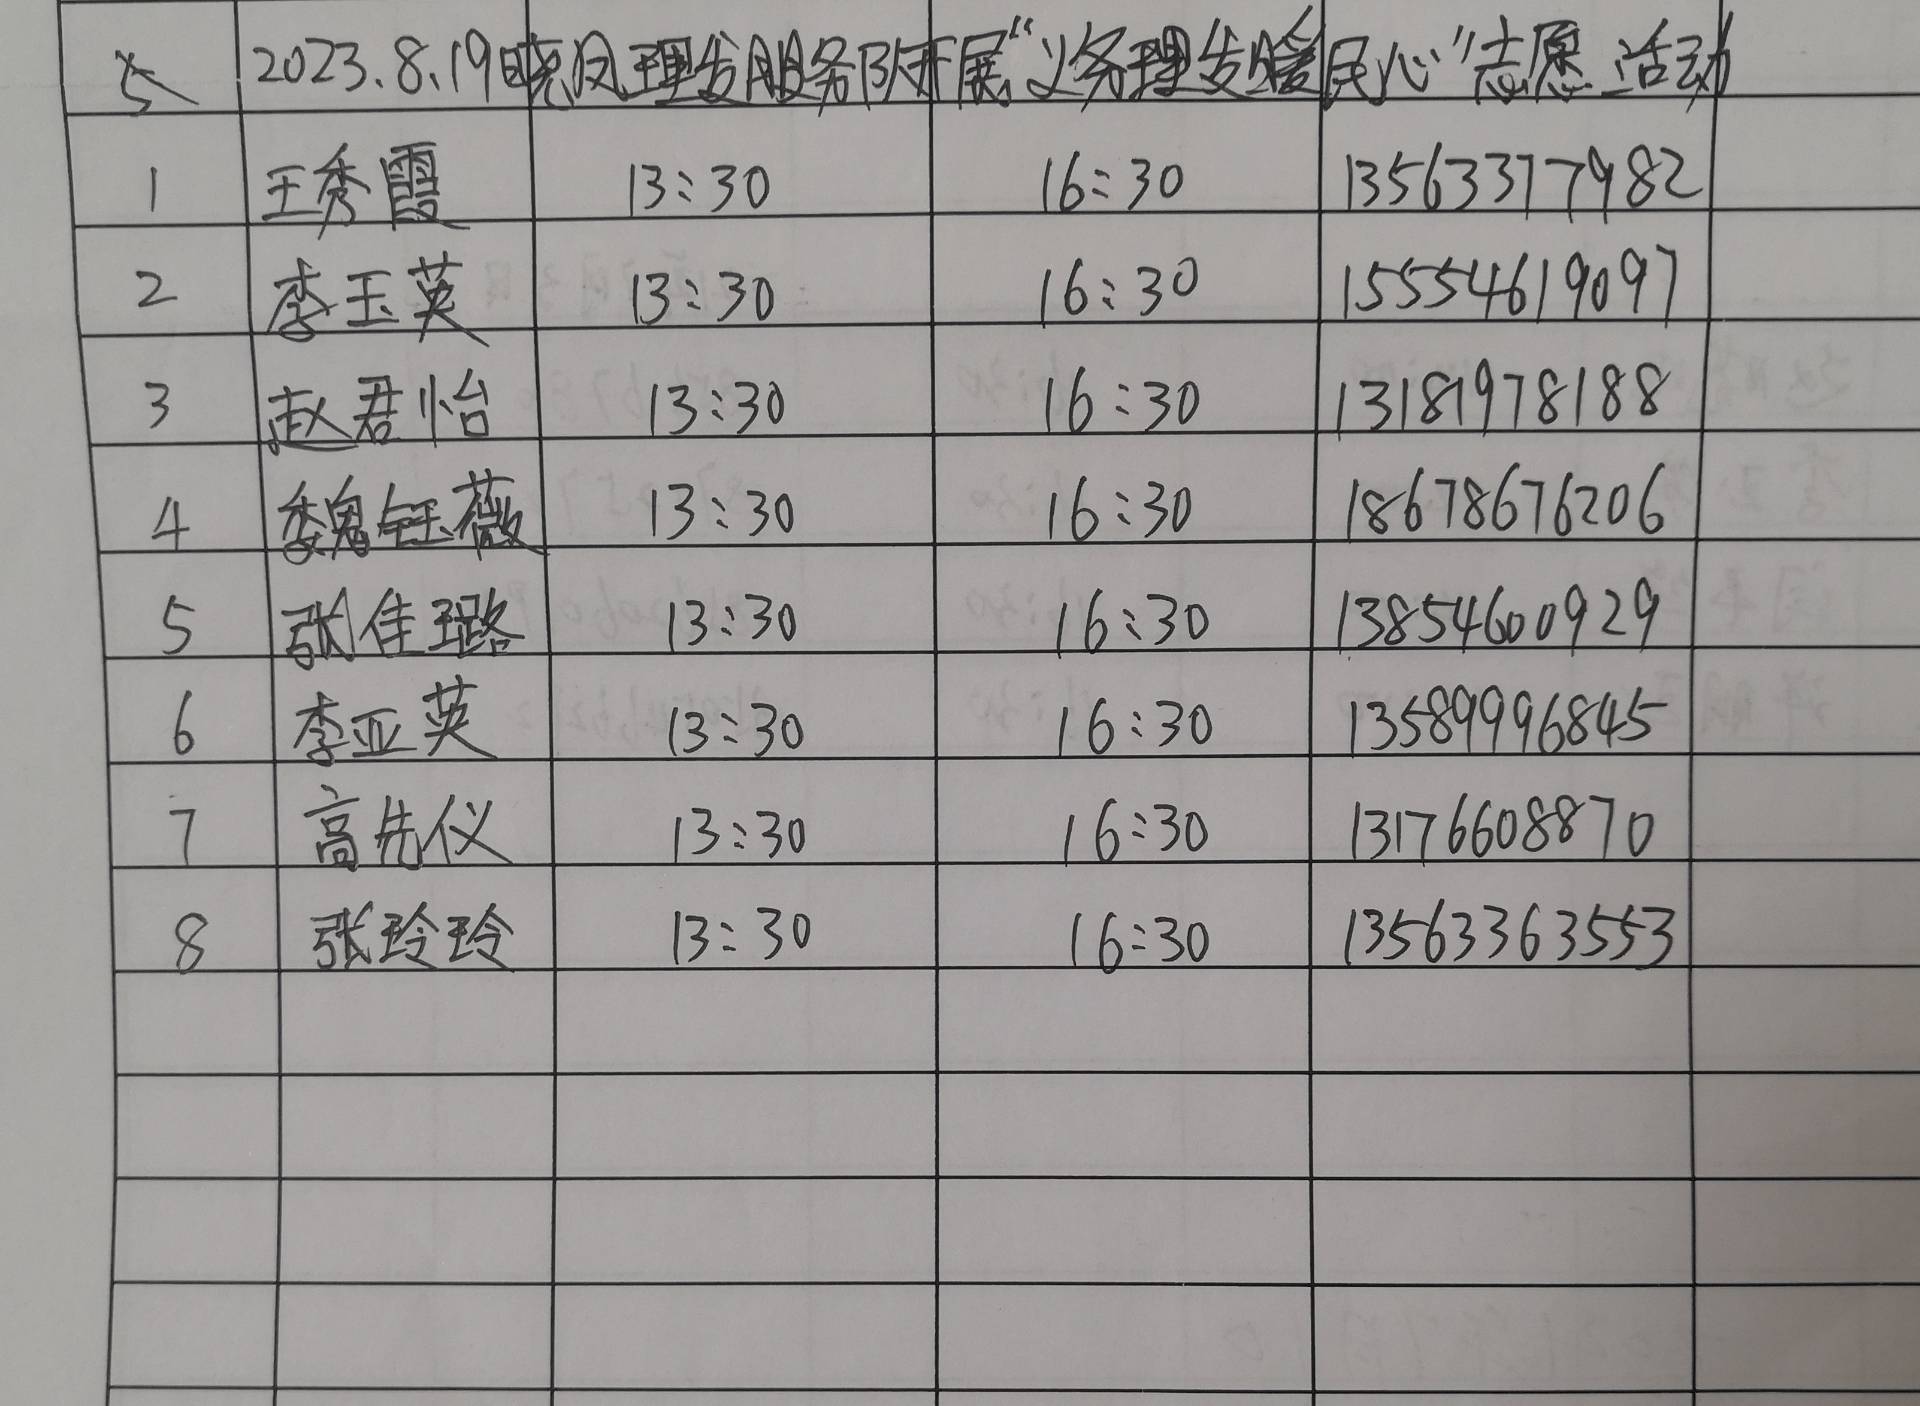 2023.8.19晓风理发服务队开展“义务理发暖民心”志愿活动
1 王秀霞 13:30 16:30 13563377982
2 李玉英 13:30 16:30 15554619097
3 赵君怡 13:30 16:30 13181978188
4 魏钰薇 13:30 16:30 18678676206
5 张佳璐 13:30 16:30 13854600929
6 李亚英 13:30 16:30 13589996845
7 高先仪 13:30 16:30 13176608870
8 张玲玲 13:30 16:30 13563363553